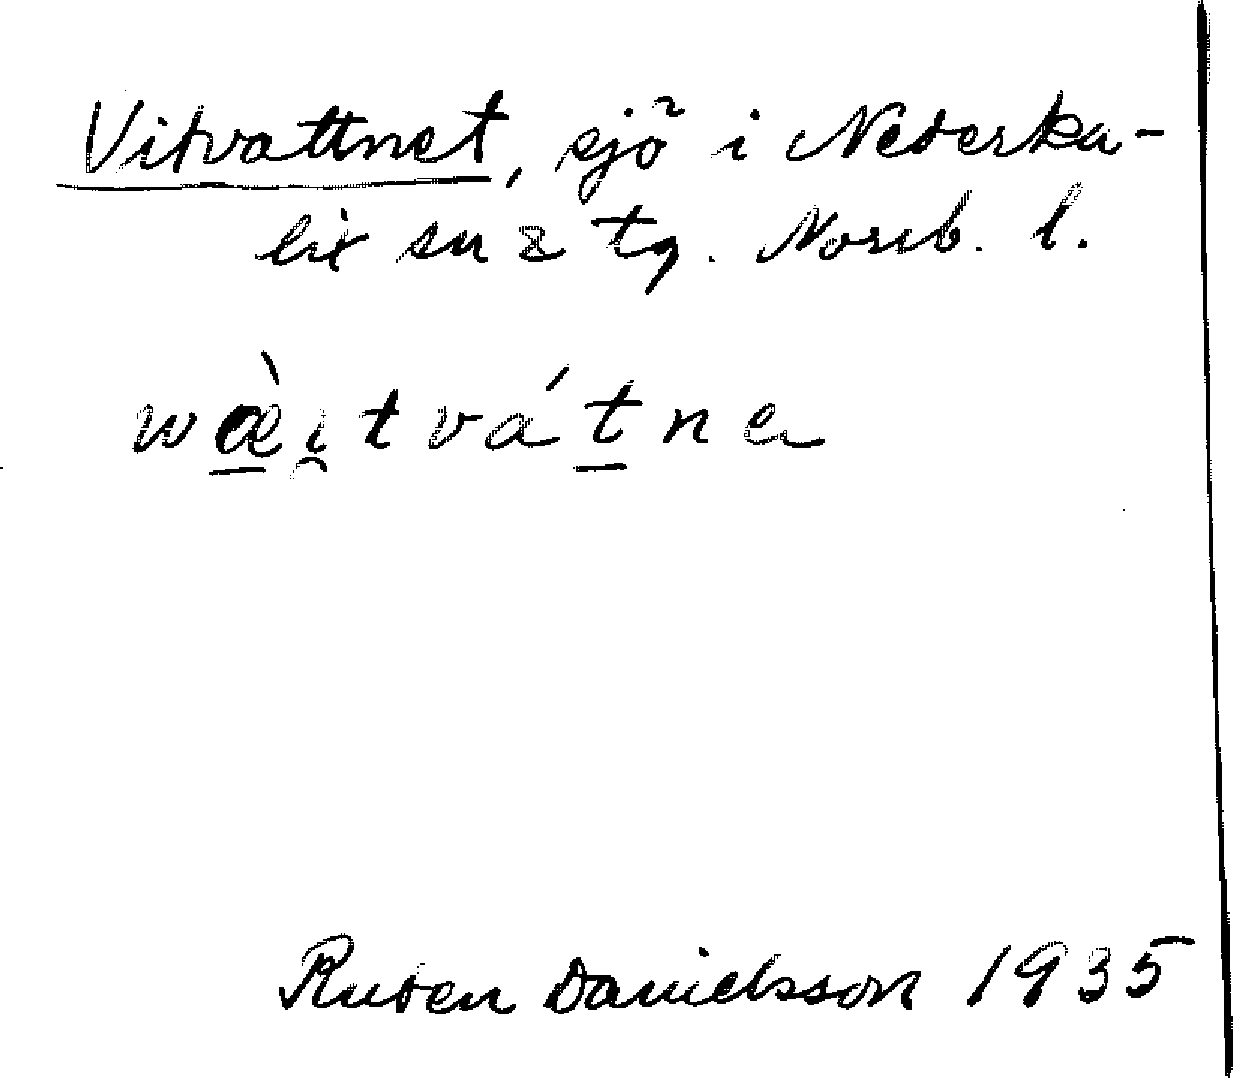 Vitvattnet, sjö i Nederka-
lix sn & tg. Norrb. l.
wæ̱̀i̯tváṯne
Ruben Danielsson 1935